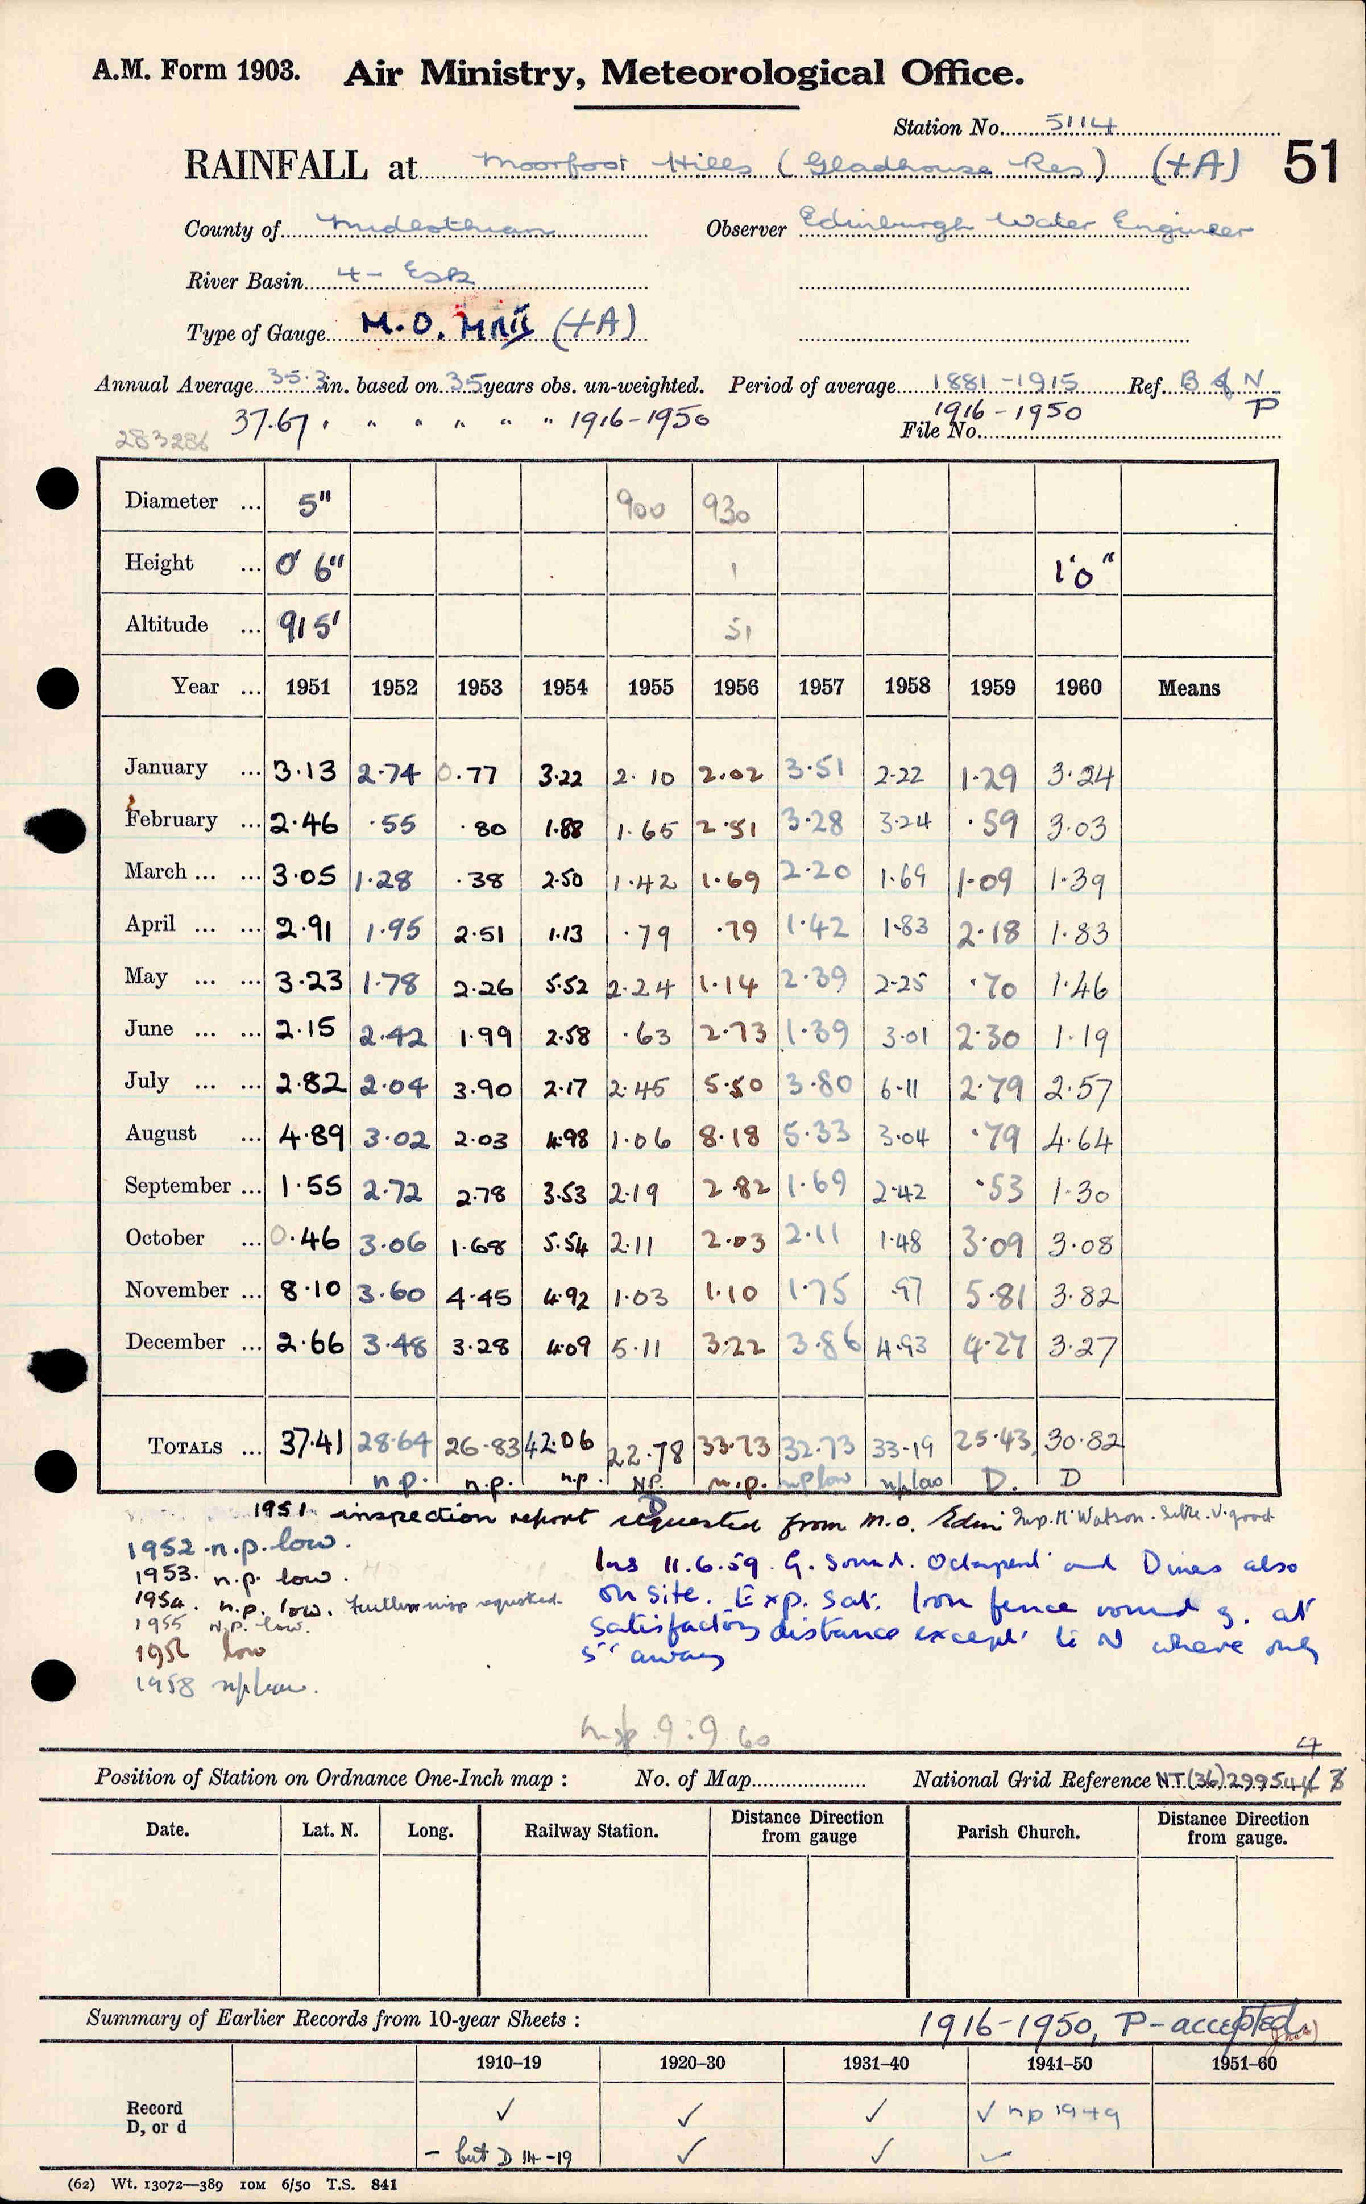 A.M. Form 1903. Air Ministry, Meteorological Office.
Station No. 5114
RAINFALL at Moorfoot Hills (Gladhouse Res) (+A) 51
County of Midlothian Observer Edinburgh Water Engineer
River Basin 4 - Esk
Type of Gauge M.O. MkII (+A)
Annual Average 35.3 in. based on 35 years obs. un-weighted. Period of average 1881-1915 Ref. B of N
37.67 " " " " " " 1916-1950 1916-1950 P
283286 File No.
Diameter ... 5" 900 930
Height ... 0' 6" 1 1'0"
Altitude ... 915' 51
Year ... 1951 1952 1953 1954 1955 1956 1957 1958 1959 1960 Means
January ... 3.13 2.74 0.77 3.22 2.10 2.02 3.51 2.22 1.29 3.24
February ... 2.46 .55 .80 1.88 1.65 2.51 3.28 3.24 .59 3.03
March ... ... 3.05 1.28 .38 2.50 1.42 1.69 2.20 1.69 1.09 1.39
April ... ... 2.91 1.95 2.51 1.13 .79 .79 1.42 1.83 2.18 1.83
May ... ... 3.23 1.78 2.26 5.52 2.24 1.14 2.39 2.25 .70 1.46
June ... ... 2.15 2.42 1.99 2.58 .63 2.73 1.39 3.01 2.30 1.19
July ... ... 2.82 2.04 3.90 2.17 2.45 5.50 3.80 6.11 2.79 2.57
August ... 4.89 3.02 2.03 4.98 1.06 8.18 5.33 3.04 .79 4.64
September ... 1.55 2.72 2.78 3.53 2.19 2.82 1.69 2.42 .53 1.30
October ... 0.46 3.06 1.68 5.54 2.11 2.03 2.11 1.48 3.09 3.08
November ... 8.10 3.60 4.45 4.92 1.03 1.10 1.75 .97 5.81 3.82
December ... 2.66 3.48 3.28 4.09 5.11 3.22 3.86 4.93 4.27 3.27
TOTALS ... 37.41 28.64 26.83 42.06 22.78 33.73 32.73 33.19 25.43 30.82
n.p. n.p. n.p. N.P. n.p. nplow nplow D. D
1951 inspection report requested from M.O. Edin Insp. Mr Watson. V. good
1952 n.p. low.
1953. n.p. low.
1954. n.p. low. further insp requested.
1955 N.P. low.
1956 low
1958 nplow.
Ins 11.6.59. G. Sound. Octapent and Dines also
on site. Exp. Sat. Iron fence round g. at
satisfactory distance except to N where only
5'' away
Insp 9.9.60
Position of Station on Ordnance One-Inch map : No. of Map National Grid Reference N.T.(36) 299544
Date. Lat. N. Long. Railway Station. Distance from gauge Direction Parish Church. Distance Direction from gauge.
Summary of Earlier Records from 10-year Sheets : 1916-1950, P - accepted
1910–19 1920–30 1931–40 1941–50 1951–60
Record ✓ ✓ ✓ ✓ np 1949
D, or d - but D 14-19 ✓ ✓ ✓
(62) Wt. 13072—389 10M 6/50 T.S. 841